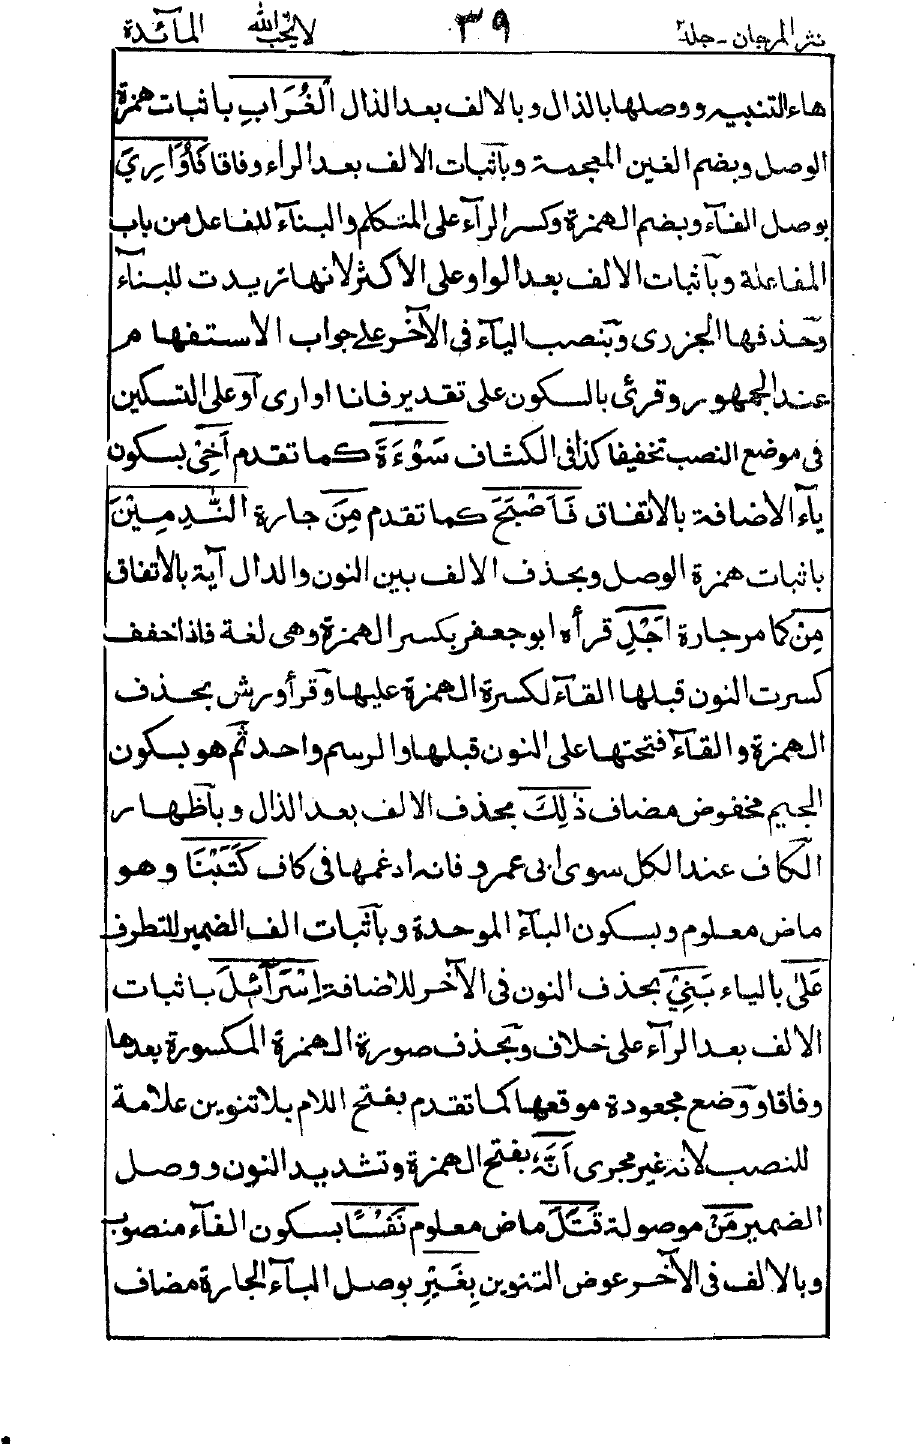 نثر المرجان - جلد ۲ ٣٩ لا يحب الله المآئدة
هاء التنبيه ووصلها بالذال وبالالف بعد الذال الْغُرَابِ باثبات همزة
الوصل وبضم الغين المعجمة وبآثبات الالف بعد الراء وفاقا فَأُوَارِيَ
بوصل الفآء وبضم الهمزة وكسر الرآء على المتكلم والبنآء للفاعل من باب
المفاعلة وبآثبات الالف بعد الواو على الاكثر لانها زيدت للبنآء
وحذفها الجزرى وبنصب اليآء فى الآخر على جواب الاستفهام
عند الجمهور وقرئ بالسكون على تقدير فانا اوارى آو على التسكين
فى موضع النصب تخفيفا كذا فى الكشاف سَوْءَةَ كما تقدم أَخِيْ بسكون
يآء الاضافة بالاتفاق فَاَصْبَحَ كما تقدم مِنَ جارة النّٰدِمِيْنَ
باثبات همزة الوصل وبحذف الالف بين النون والدال آية بالاتفاق
مِنْ كما مر جارة اَجْلِ قرأه ابو جعفر بكسر الهمزة وهى لغة فاذا خفف
كسرت النون قبلها القآء لكسرة الهمزة عليها وقرأ ورش بحذف
الهمزة والقآء فتحتها على النون قبلها والرسم واحد ثم هو بسكون
الجيم مخفوض مضاف ذٰلِكَ بحذف الالف بعد الذال وبآظهار
الكاف عند الكل سوى ابى عمرو فانه ادغمها فى كاف كَتَبْنَا وهو
ماض معلوم وبسكون البآء الموحدة وبآثبات الف الضمير للتطرف
عَلٰى بالياء بَنِيْ بحذف النون فى الآخر للاضافة اِسْرَآئِلَ باثبات
الالف بعد الرآء على خلاف وبحذف صورة الهمزة المكسورة بعدها
وفاقا ووضع مجعودة موقعها كما تقدم بفتح اللام بلا تنوين علامة
للنصب لانه غير مجرى أَنَّهٗ بفتح الهمزة وتشديد النون ووصل
الضمير مَنْ موصولة قَتَلَ ماض معلوم نَفْسًا بسكون الفآء منصوب
وبالالف فى الآخر عوض التنوين بِغَيْرِ بوصل البآء الجارة مضاف